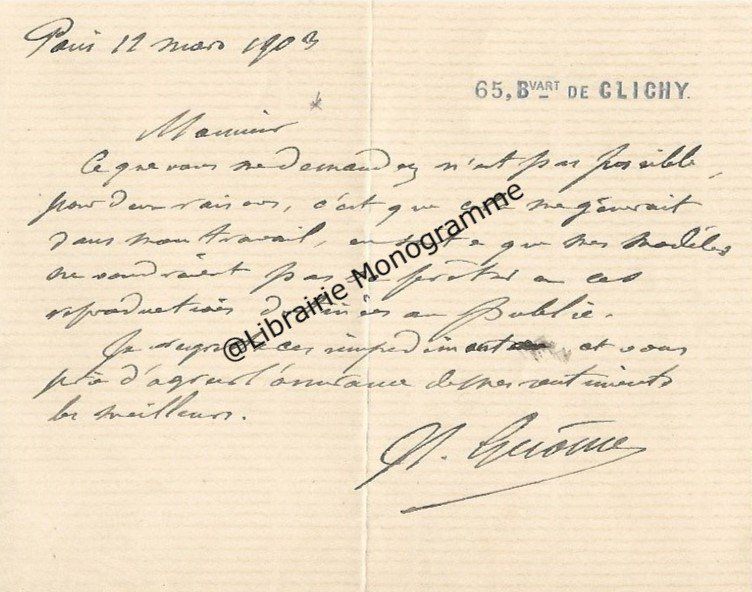 Paris 12 mars 1903
65, BVART DE CLICHY.
Monsieur
Ce que vous me demandez n'est pas possible,
pour deux raisons, c'est que cela me gênerait
dans mon travail, ensuite que mes modèles
ne voudraient pas se prêter a ces
reproductions destinées au public.
Je regrette ces impedimenta et vous
prie d'agréer l'assurance de mes sentiments
les meilleurs.
Gérôme
@Librairie Monogramme